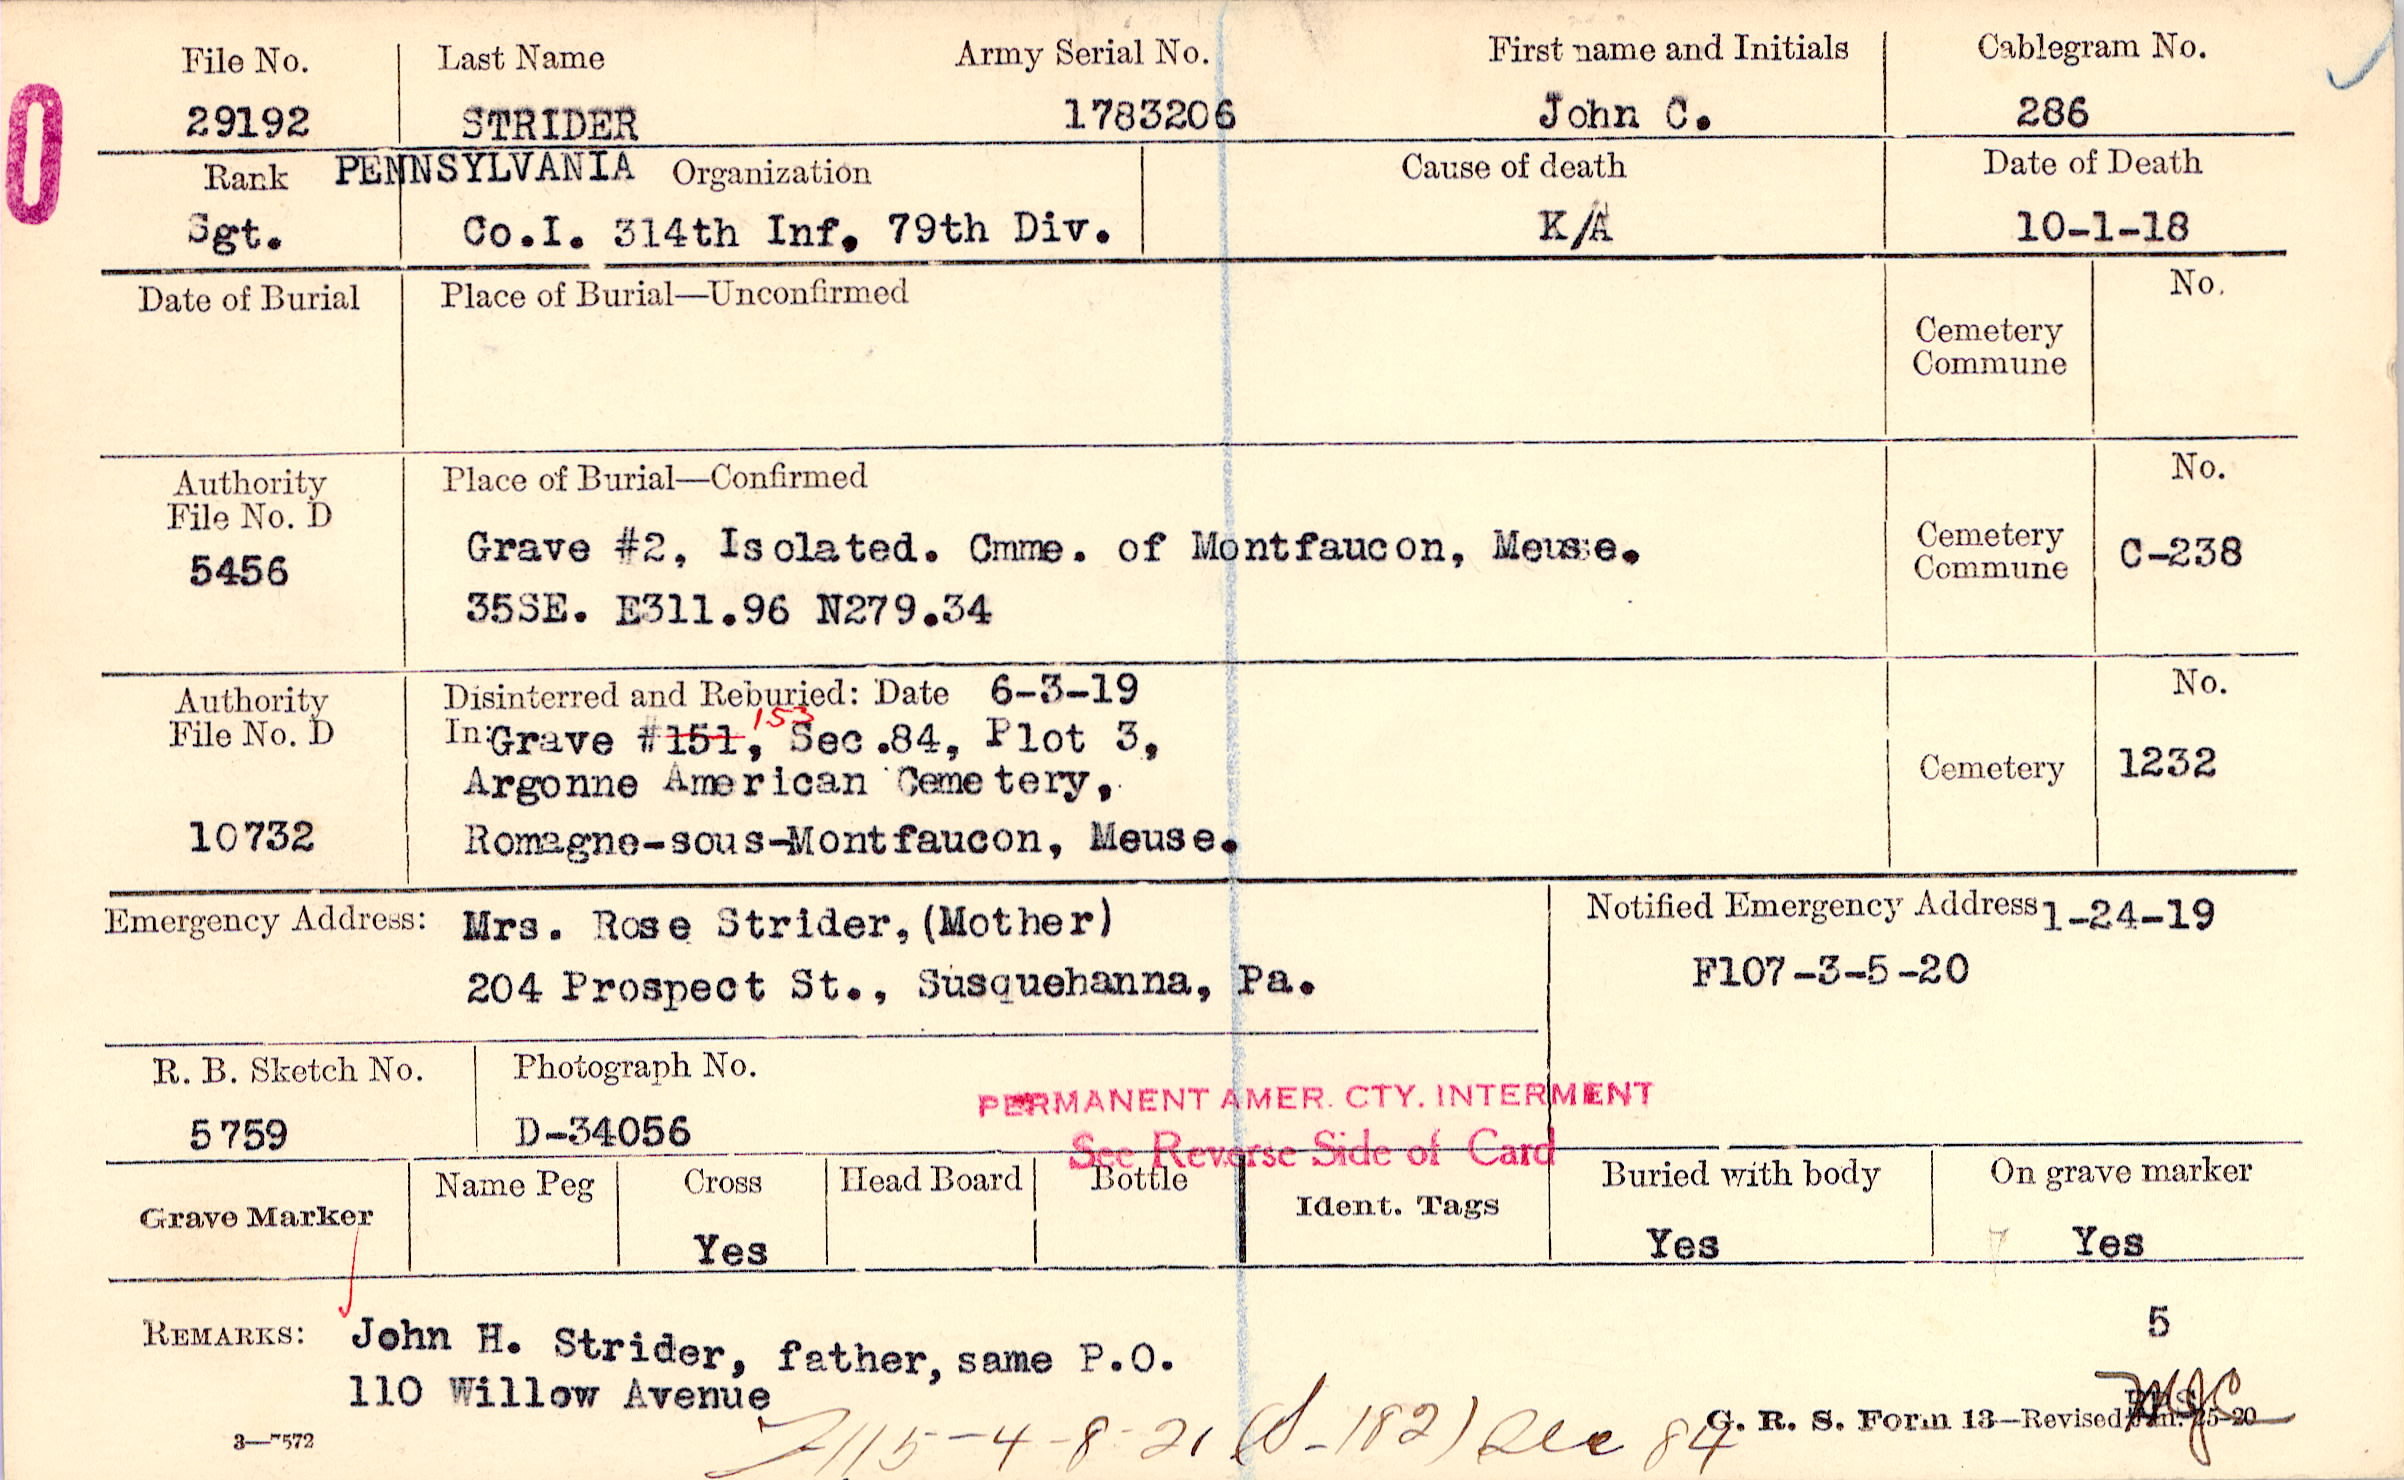 File No. Last Name Army Serial No. First name and Initials Cablegram No.
29192 STRIDER 1783206 John C. 286
Rank PENNSYLVANIA Organization Cause of death Date of Death
Sgt. Co.I. 314th Inf, 79th Div. K/A 10-1-18
Date of Burial Place of Burial—Unconfirmed No.
Cemetery
Commune
Authority Place of Burial—Confirmed No.
File No. D
5456 Grave #2, Isolated. Cmme. of Montfaucon, Meuse. Cemetery
Commune C-238
35SE. E311.96 N279.34
Authority Disinterred and Reburied: Date 6-3-19 No.
153
File No. D In: Grave #151, Sec.84, Plot 3,
Argonne American Cemetery, Cemetery 1232
10732 Romagne-sous-Montfaucon, Meuse.
Emergency Address: Mrs. Rose Strider,(Mother) Notified Emergency Address 1-24-19
204 Prospect St., Susquehanna, Pa. F107-3-5-20
R. B. Sketch No. Photograph No.
PERMANENT AMER. CTY. INTERMENT
5759 D-34056
See Reverse Side of Card
Grave Marker Name Peg Cross Head Board Bottle Ident. Tags Buried with body On grave marker
Yes Yes Yes
5
REMARKS: John H. Strider, father, same P.O.
110 Willow Avenue
G. R. S. Form 13—Revised Jan. 25-20
3—7572
115-4-8-21 (S-182) Sec 84